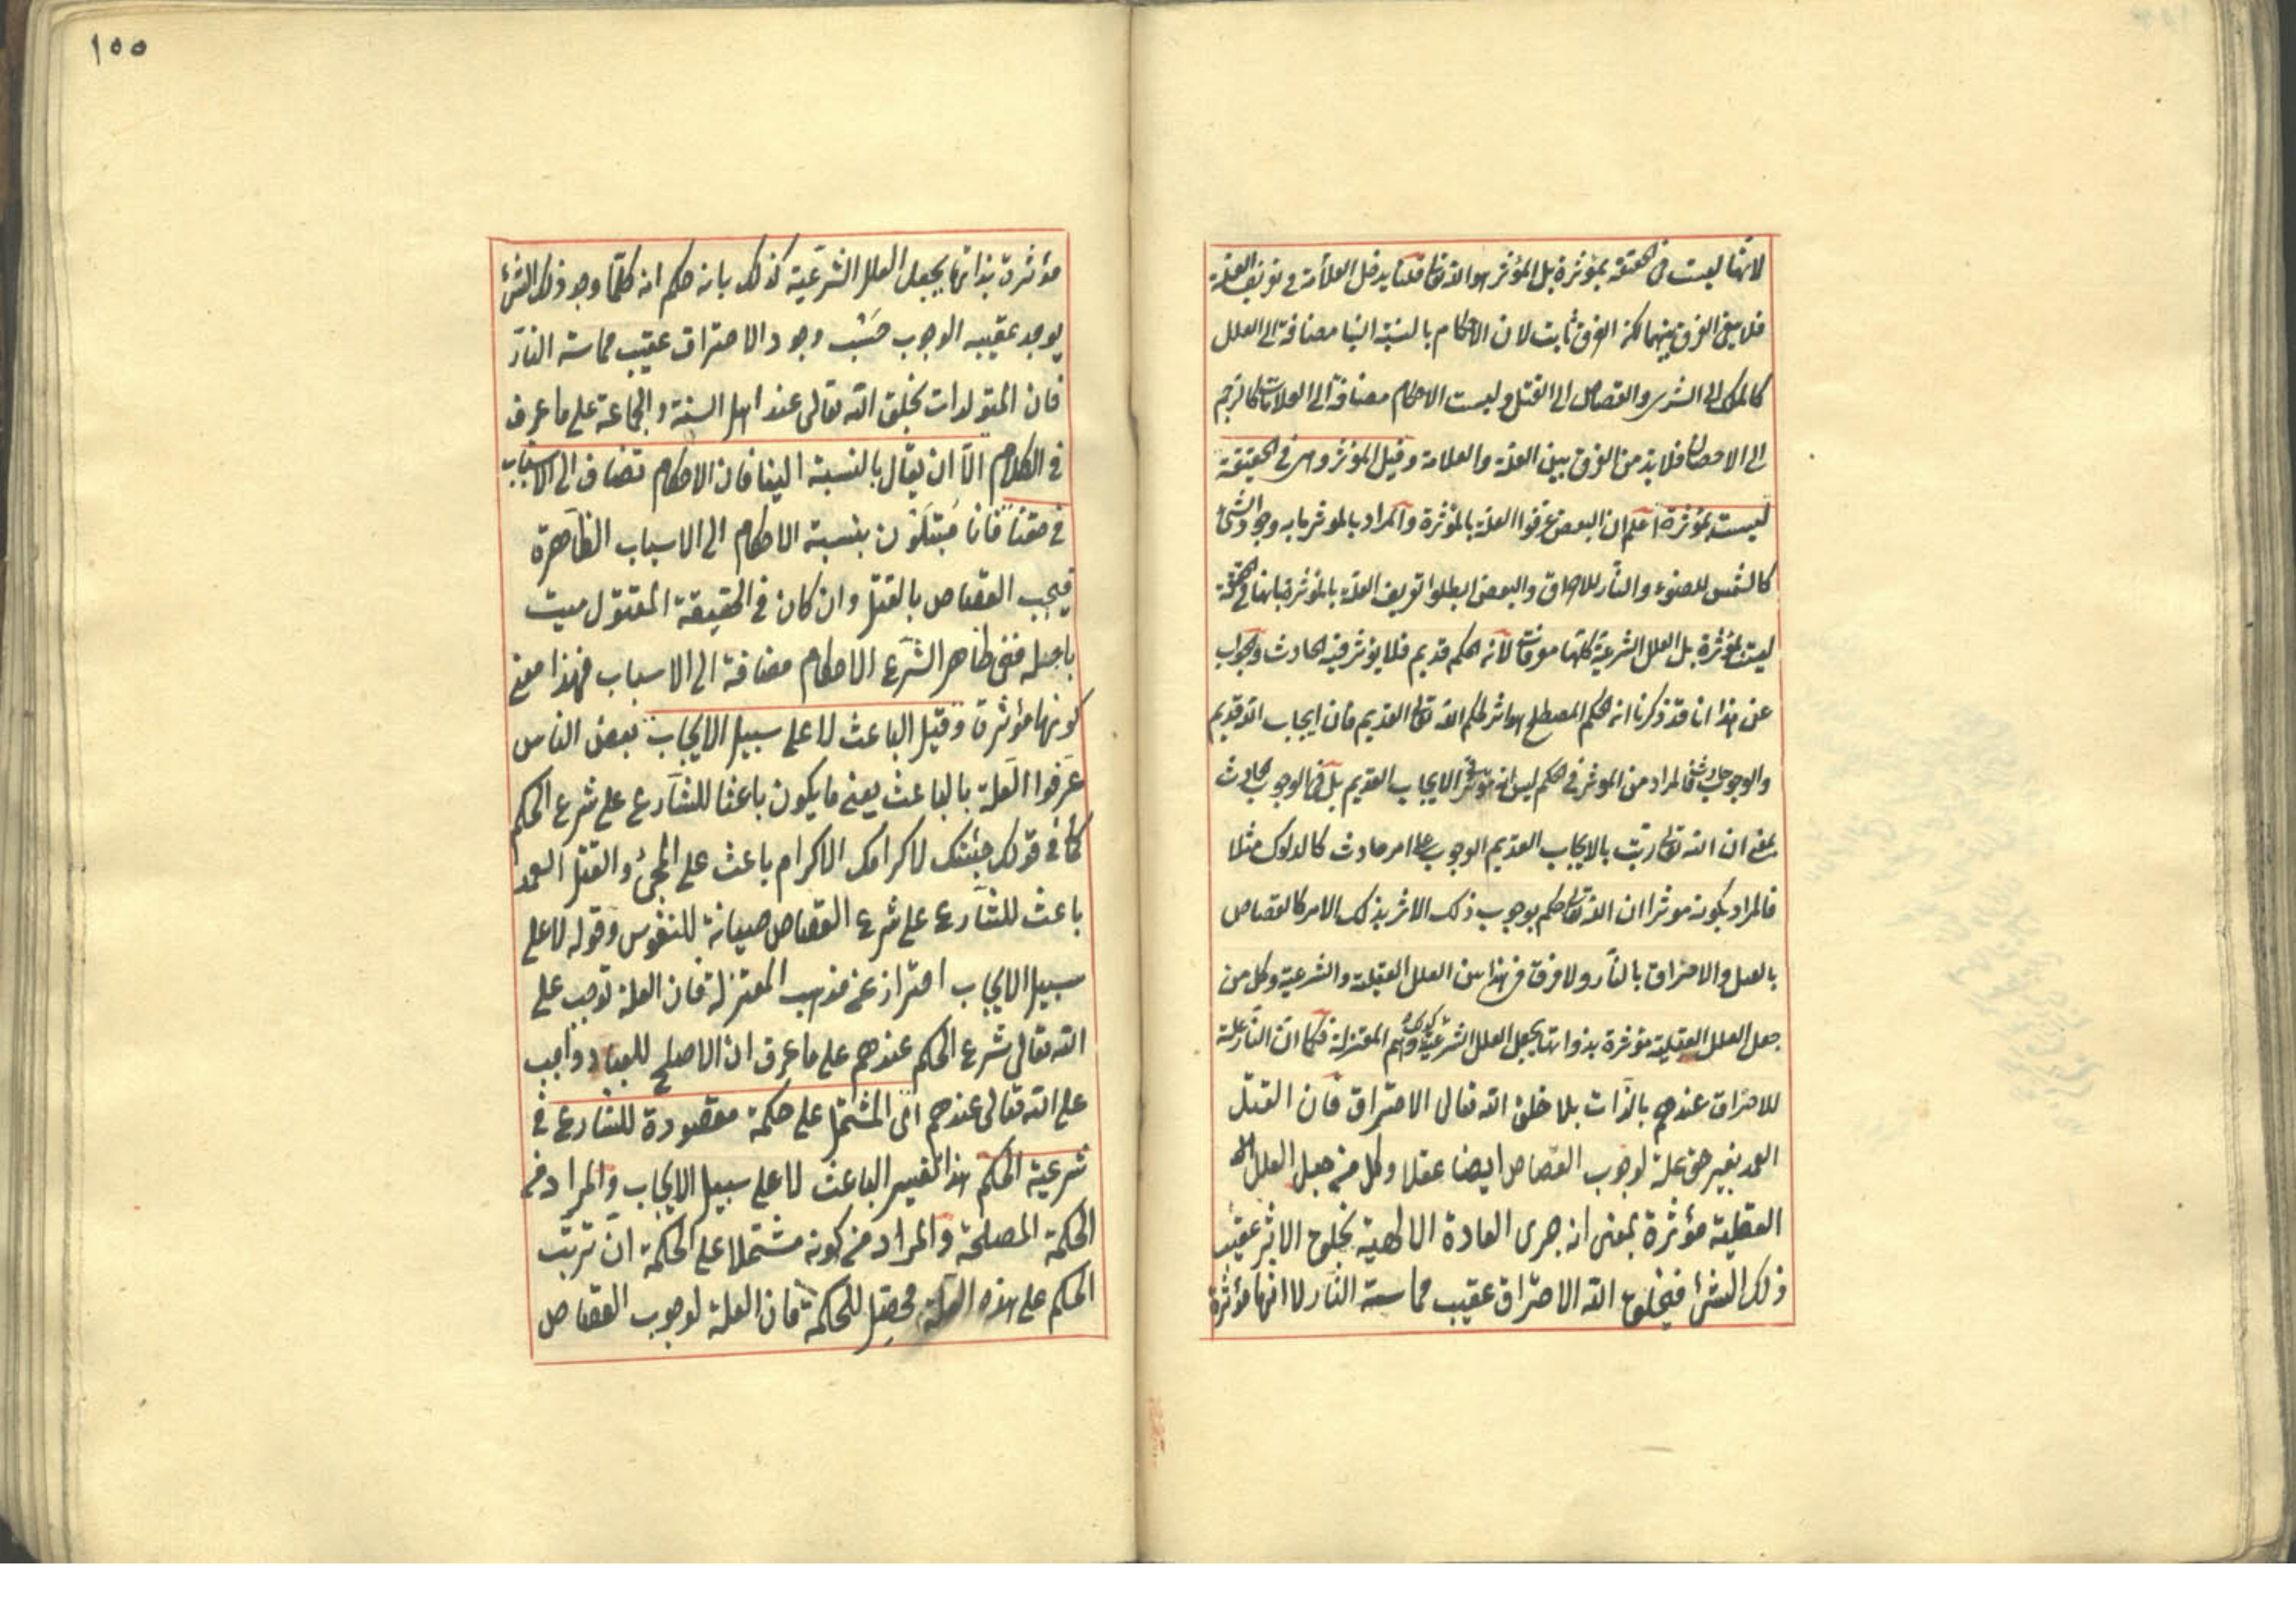 لانها ليست في الحقيقة بمؤثرة بل المؤثر هو الله تعا قلنا يدخل العلامة في تعريف العلة
فلا يبقى الفرق بينهما لكن الفرق ثابت لان الاحكام بالنسبة الينا مضافة الى العلل
كالملك الى الشرى والقصاص الى القتل وليست الاحكام مضافة الى العلامات كالرجم
الى الاحصان فلا بد من الفرق بين العلة والعلامة وقيل المؤثر وهي في الحقيقة
ليست بمؤثرة اعلم ان البعض عرفوا العلة بالمؤثرة والمراد بالمؤثر ما به وجود الشئ
كالشمس للضوء والنار للاحراق والبعض ابطلوا تعريف العلة بالمؤثرة بانها في الحقيقة
ليست بمؤثرة بل العلل الشرعية كلها معرفات لانه الحكم قديم فلا يؤثر فيه الحادث والجواب
عن هذا انا قد ذكرنا انه الحكم المصطلح هو اثر لحكم الله تعا القديم فان ايجاب الله قديم
والوجوب حادث فالمراد من المؤثر في الحكم ليس انه مؤثر في الايجاب القديم بل في الوجوب الحادث
بمعنى ان الله تعا رتب بالايجاب القديم الوجوب على امر حادث كالدلوك مثلا
فالمراد بكونه موثرا ان الله تعا حكم بوجوب ذلك الاثر بذلك الامر كالقصاص
بالقتل والاحتراق بالنار ولا فرق في هذا بين العلل العقلية والشرعية وكل من
جعل العلل العقلية مؤثرة بذواتها يجعل العلل الشرعية كذلك وهم المعتزلة فكما ان النار علة
للاحتراق عندهم بالذات بلا خلق الله تعالى الاحتراق فان القتل
العمد بغير حق علة لوجوب القصاص ايضا عقلا وكل من جعل العلل
العقلية مؤثرة بمعنى انه جرى العادة الالهية بخلق الاثر عقيب
ذلك الشئ فيخلق الله الاحتراق عقيب مماسة النار لا انها مؤثرة
١٥٥
مؤثرة بذاتها يجعل العلل الشرعية كذلك بانه حكم انه كلما وجد ذلك الشئ
يوجد عقيبه الوجوب حسب وجود الاحتراق عقيب مماسة النار
فان المتولدات بخلق الله تعالى عند اهل السنة والجماعة على ما عرف
في الكلام الا ان يقال بالنسبة الينا فان الاحكام تضاف الى الاسباب
في حقنا فانا مبتلون بنسبة الاحكام الى الاسباب الظاهرة
فيجب القصاص بالقتل وان كان في الحقيقة المقتول ميت
باجله ففي ظاهر الشرع الاحكام مضافة الى الاسباب فهذا معنى
كونها مؤثرة وقيل الباعث لا على سبيل الايجاب بعض الناس
عرفوا العلة بالباعث يعني ما يكون باعثا للشارع على شرع الحكم
كما في قولك جئتك لاكرامك الاكرام باعث على المجئ والقتل العمد
باعث للشارع على شرع القصاص صيانة للنفوس وقوله لا على
سبيل الايجاب احتراز عن مذهب المعتزلة فان العلة توجب على
الله تعالى شرع الحكم عندهم على ما عرف ان الاصلح للعباد واجب
على الله تعالى عندهم اى المشتمل على حكمة مقصودة للشارع في
شرعية الحكم هذا تفسير الباعث لا على سبيل الايجاب والمراد من
الحكمة المصلحة والمراد من كونه مشتملا على الحكمة ان ترتب
الحكم على هذه العلة محصل للحكمة فان العلة لوجوب القصاص